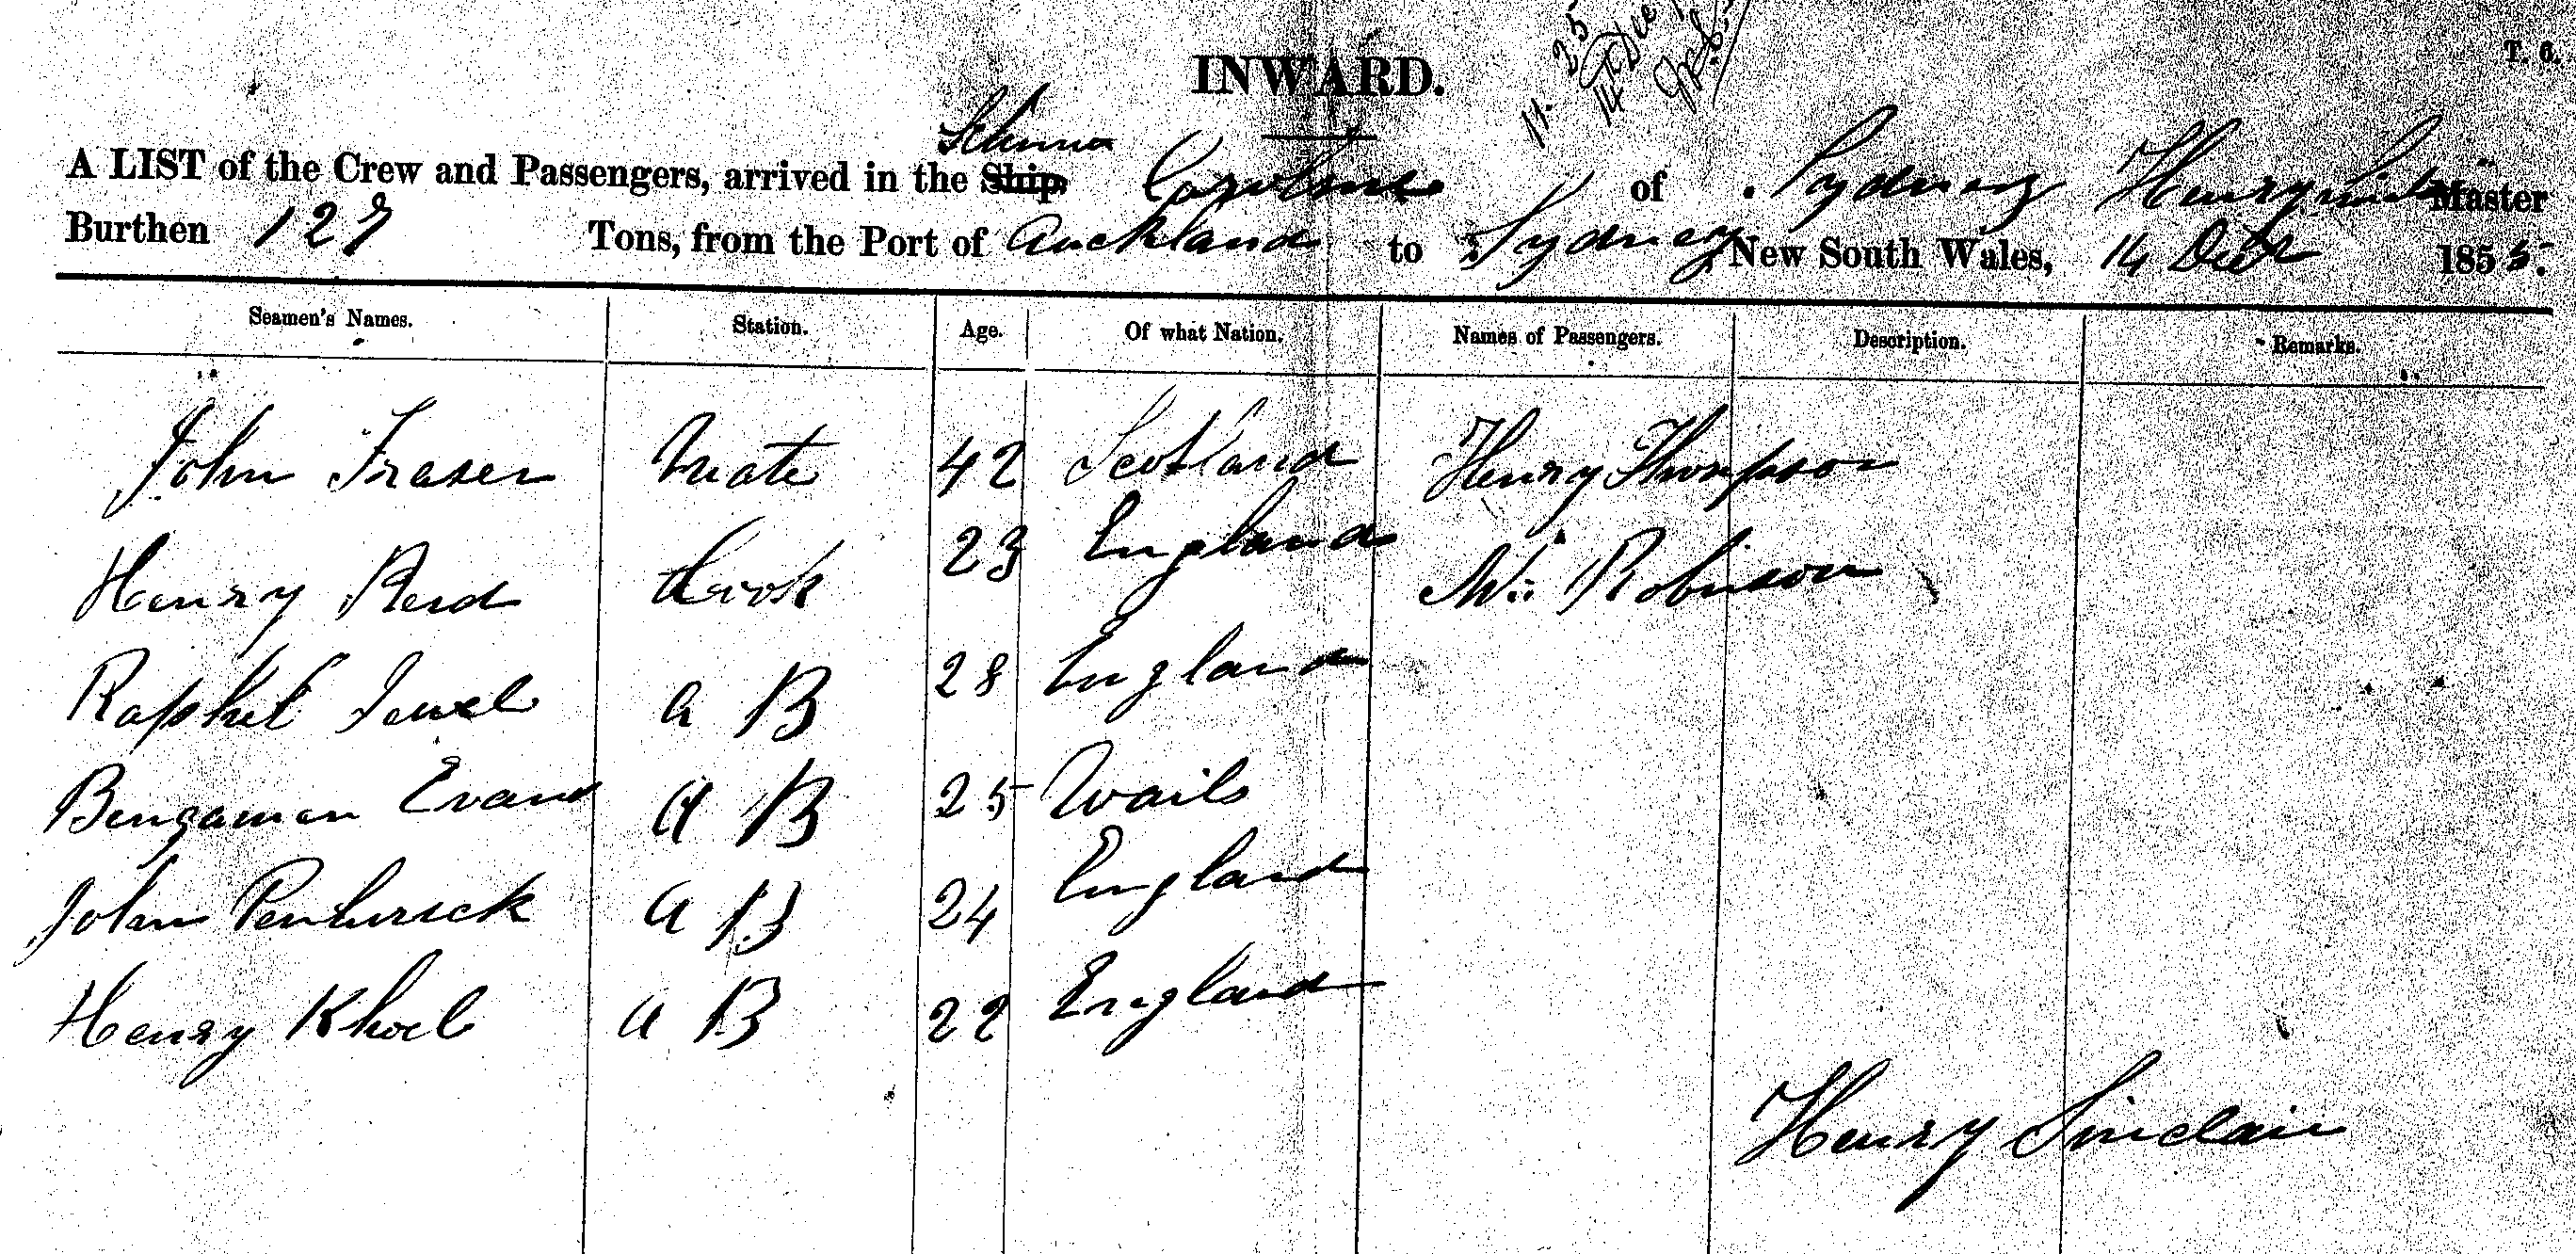 INWARD.
11. 25
14 Dec
T. 6.
Schuner
A LIST of the Crew and Passengers, arrived in the Ship Caroline of Sydney Henry Sinclair Master
Burthen 127 Tons, from the Port of Auckland to Sydney New South Wales, 14 Decr 1855.
Seamen's Names. Station. Age. Of what Nation. Names of Passengers. Description. Remarks.
John Fraser Mate 42 Scotland Henry Thompson
Henry Reid Cook 23 England Mr Robinson
Raphel Jewel a B 28 England
Bengaman Evans A B 25 Wails
John Penhirick a B 24 England
Henry Khoel a B 22 England
Henry Sinclair